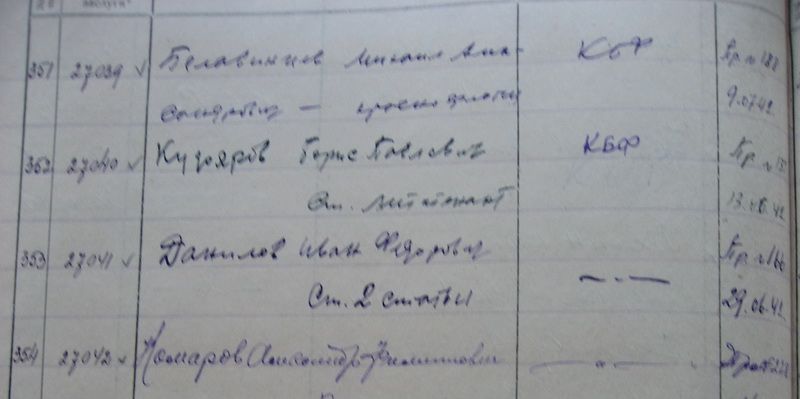 351 27039 Белавинцев Михаил Алек- КБФ Пр. № 188
сандрович — 9.07.42
352 27040 Кузояров Борис Павлович КБФ Пр. №
Ст. лейтенант 13.06.42
353 27041 Данилов Иван Федорович — " — Пр. № 166
Ст. 2 статьи 29.06.42
354 27042 Комаров Александр — " —